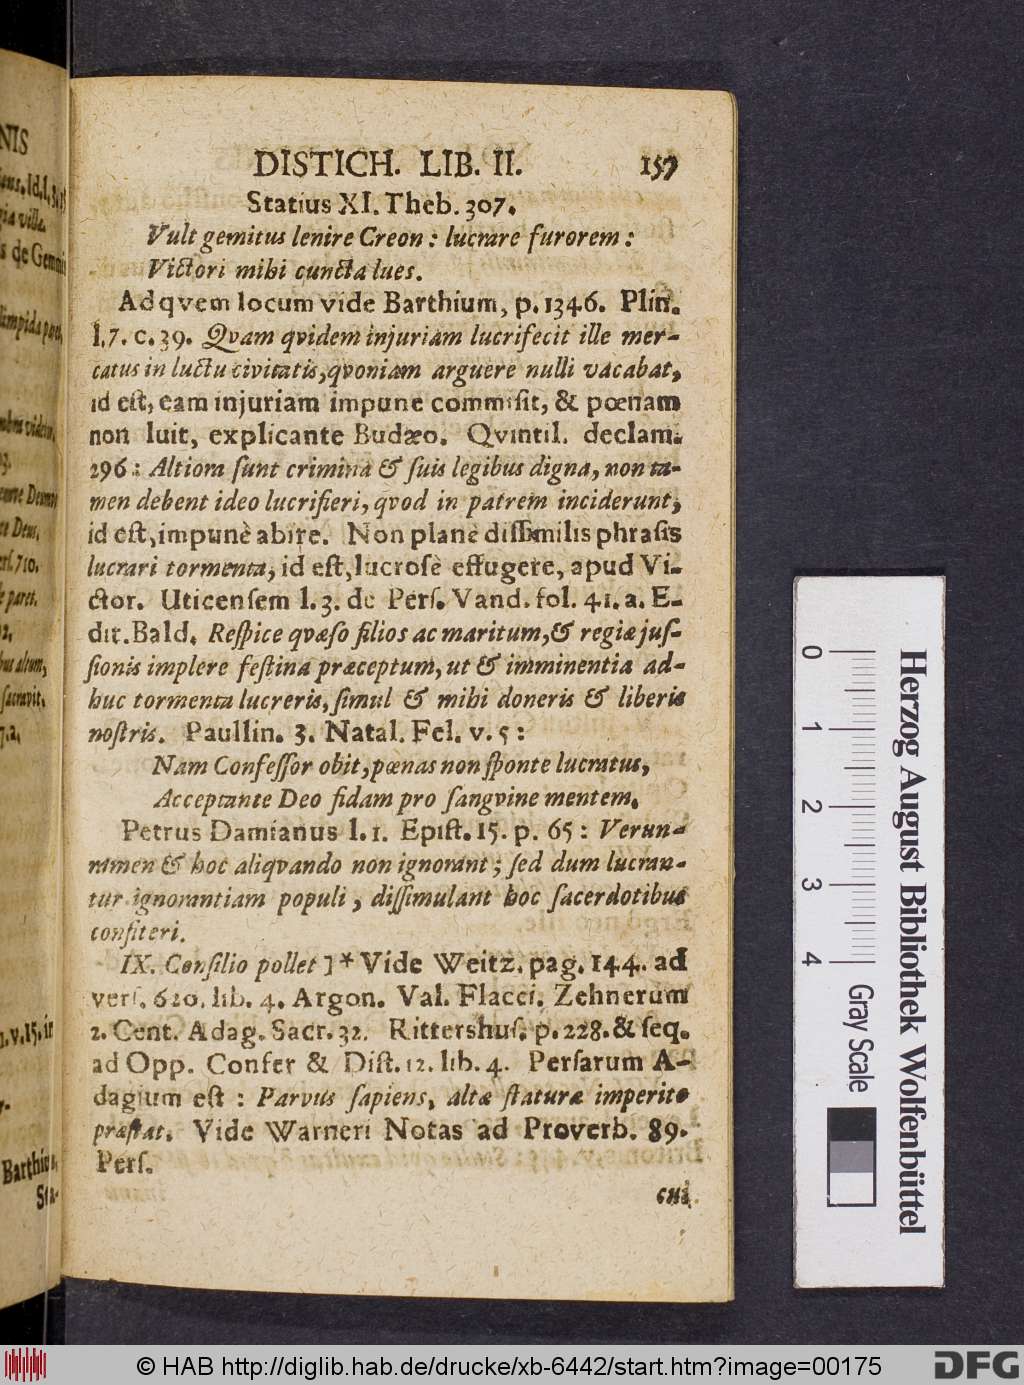 DISTICH. LIB. II. 157
Statius XI. Theb. 307.
Vult gemitus lenire Creon: lucrare furorem:
Victori mihi cuncta lues.
Ad qvem locum vide Barthium, p. 1346. Plin.
l. 7. c. 39. Qvam qvidem injuriam lucrifecit ille mer-
catus in luctu civitatis, qvoniam arguere nulli vacabat,
id eſt, eam injuriam impune commiſit, & pœnam
non luit, explicante Budæo. Qvintil. declam.
296: Altiora ſunt crimina & ſuis legibus digna, non ta-
men debent ideo lucrifieri, qvod in patrem inciderunt,
id eſt, impunè abire. Non planè diſſimilis phraſis
lucrari tormenta, id eſt, lucroſè effugere, apud Vi-
ctor. Uticenſem l. 3. de Perſ. Vand. fol. 41. a. E-
dit. Bald. Reſpice qvæſo filios ac maritum, & regiæ juſ-
ſionis implere feſtina præceptum, ut & imminentia ad-
huc tormenta lucreris, ſimul & mihi doneris & liberis
noſtris. Paullin. 3. Natal. Fel. v. 5:
Nam Confeſſor obit, pœnas non ſponte lucratus,
Acceptante Deo fidam pro ſangvine mentem.
Petrus Damianus l. 1. Epiſt. 15. p. 65: Verun-
tamen & hoc aliqvando non ignorant; ſed dum lucran-
tur ignorantiam populi, diſſimulant hoc ſacerdotibus
confiteri.
IX. Conſilio pollet] * Vide Weitz. pag. 144. ad
verſ. 620. lib. 4. Argon. Val. Flacci. Zehnerum
2. Cent. Adag. Sacr. 32. Rittershuſ. p. 228. & ſeq.
ad Opp. Confer & Diſt. 12. lib. 4. Perſarum A-
dagium eſt: Parvus ſapiens, altæ ſtaturæ imperito
præſtat. Vide Warneri Notas ad Proverb. 89.
Perſ.
cui
NIS
ia villa.
s de Gemmis
ſacravit.
7.2.
Barthius
Sta-
0 1 2 3 4
Gray Scale
Herzog August Bibliothek Wolfenbüttel
© HAB http://diglib.hab.de/drucke/xb-6442/start.htm?image=00175
DFG